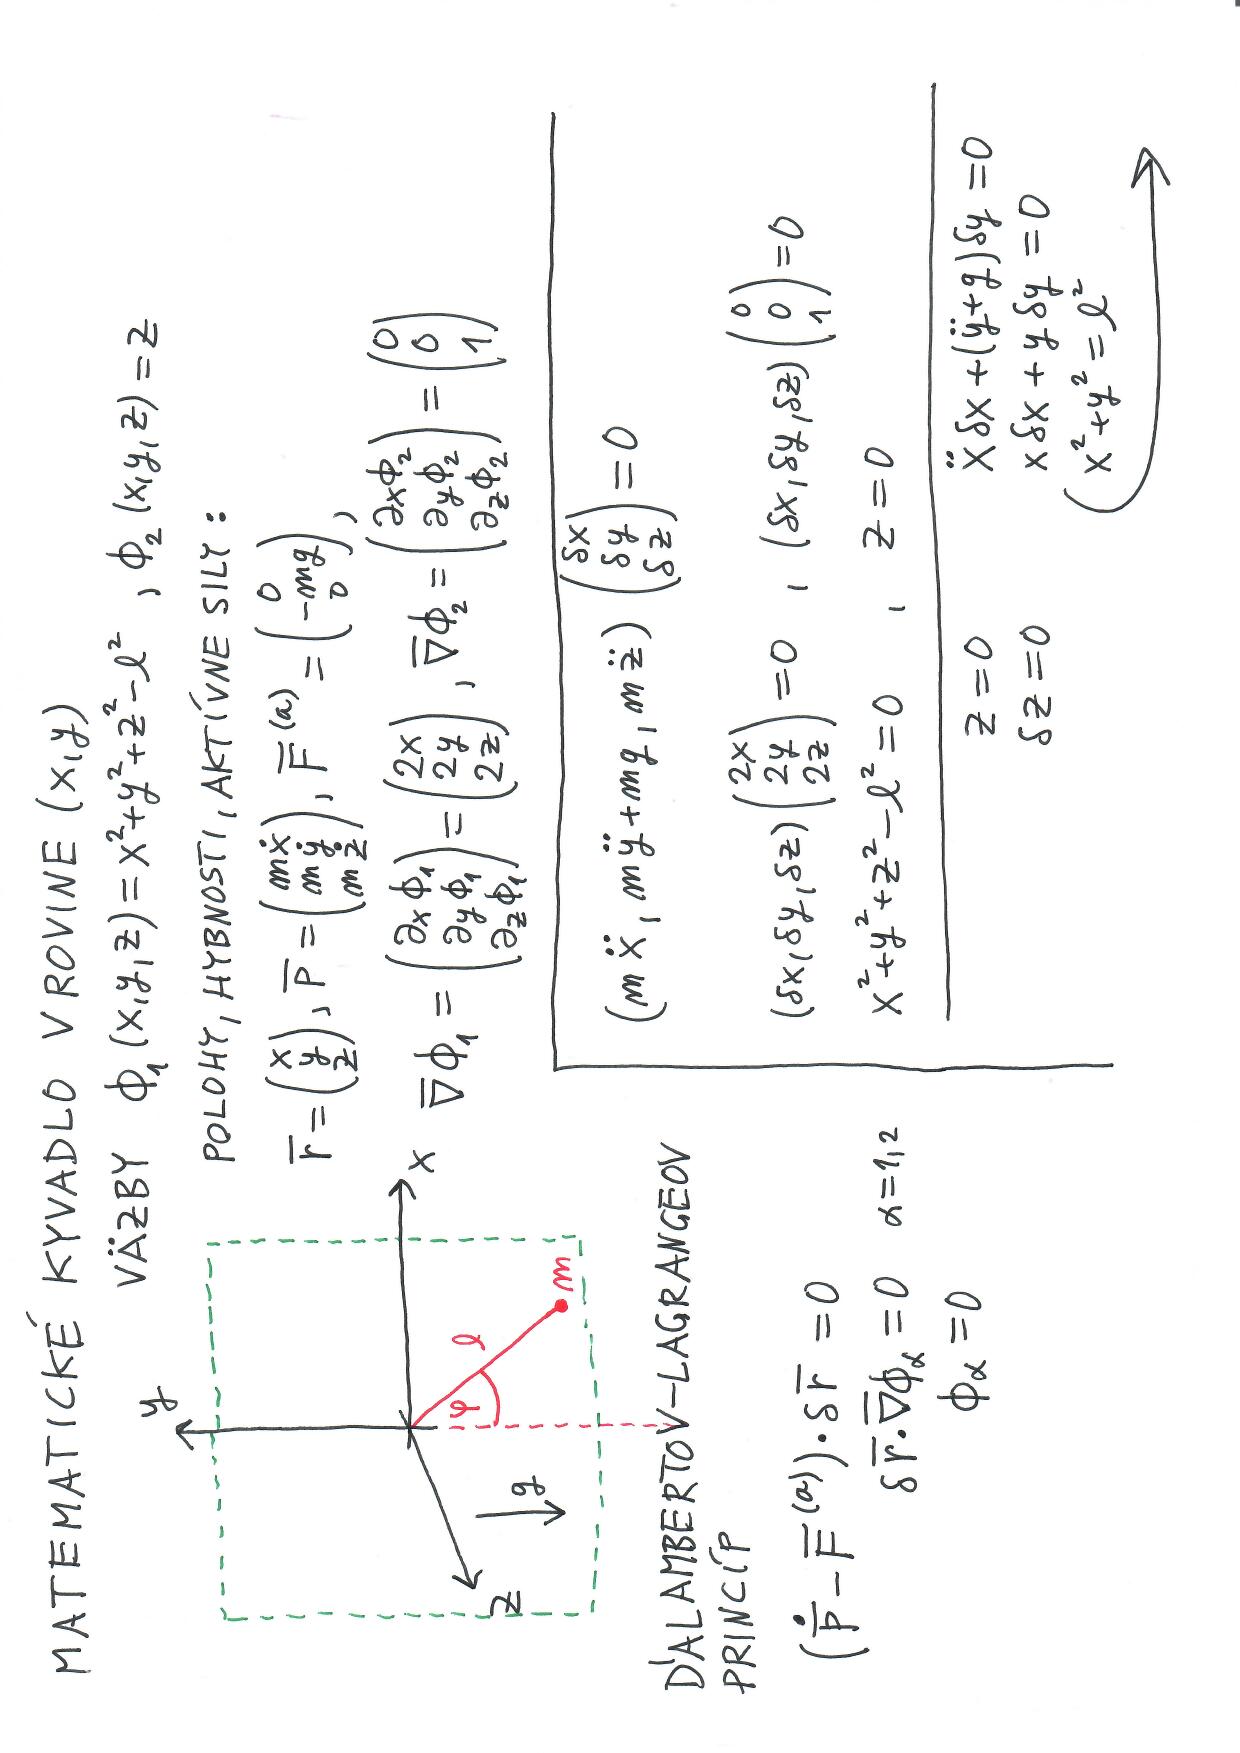 MATEMATICKÉ KYVADLO V ROVINE (x,y)
VÄZBY ϕ₁(x,y,z)=x²+y²+z²-l² , ϕ₂(x,y,z)=z
POLOHY, HYBNOSTI, AKTÍVNE SILY:
r̄=(x y z), p̄=(mẋ mẏ mż), F̄⁽ᵃ⁾=(0 -mg 0),
∇̄ϕ₁=(∂xϕ₁ ∂yϕ₁ ∂zϕ₁)=(2x 2y 2z), ∇̄ϕ₂=(∂xϕ₂ ∂yϕ₂ ∂zϕ₂)=(0 0 1)
y
x
z
g
φ
l
m
D'ALAMBERTOV-LAGRANGEOV
PRINCÍP
(ṗ̄-F̄⁽ᵃ⁾)·δr̄=0
δr̄·∇̄ϕα=0 α=1,2
ϕα=0
(mẍ, mÿ+mg, mz̈)(δx δy δz)=0
(δx,δy,δz)(2x 2y 2z)=0 , (δx,δy,δz)(0 0 1)=0
x²+y²+z²-l²=0 , z=0
z=0
δz=0
ẍδx+(ÿ+g)δy=0
xδx+yδy=0
x²+y²=l²